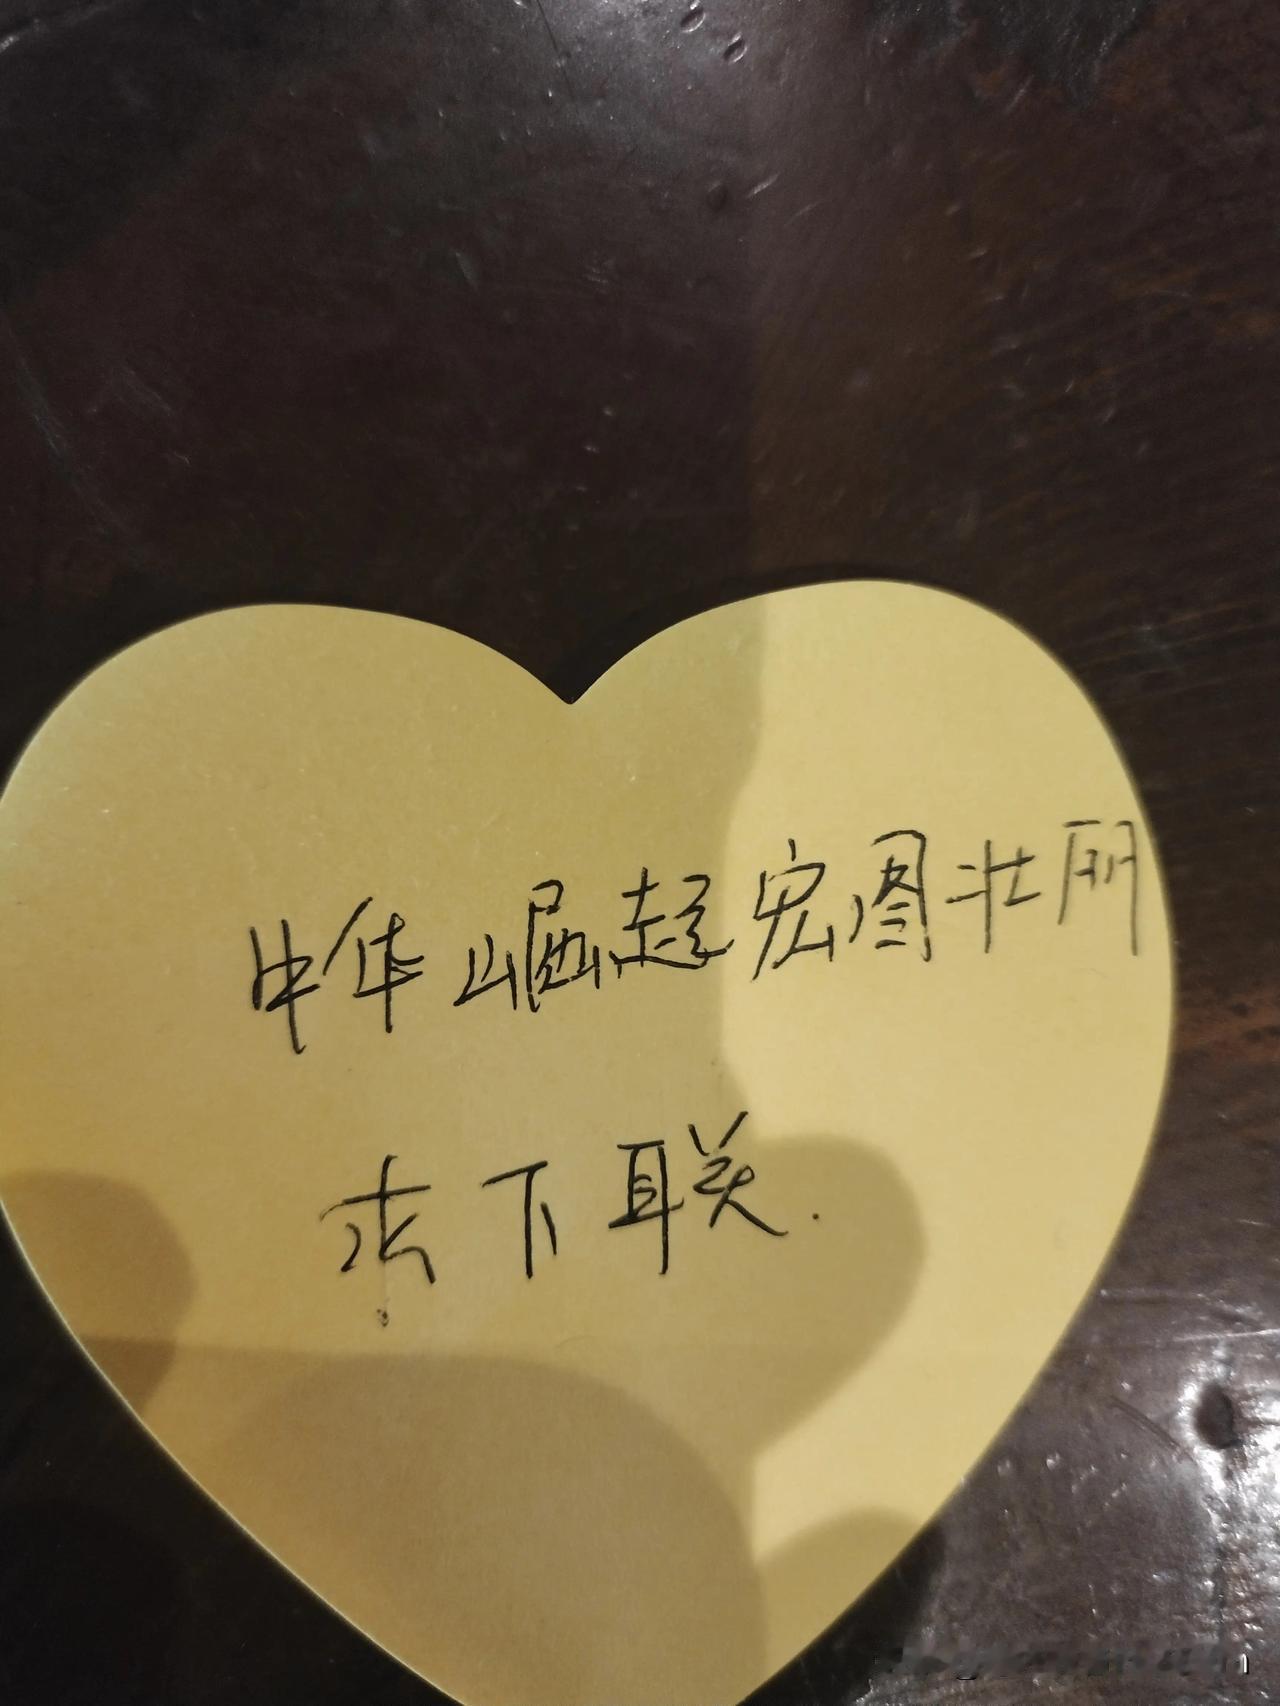 中华崛起宏图壮丽
求下联.